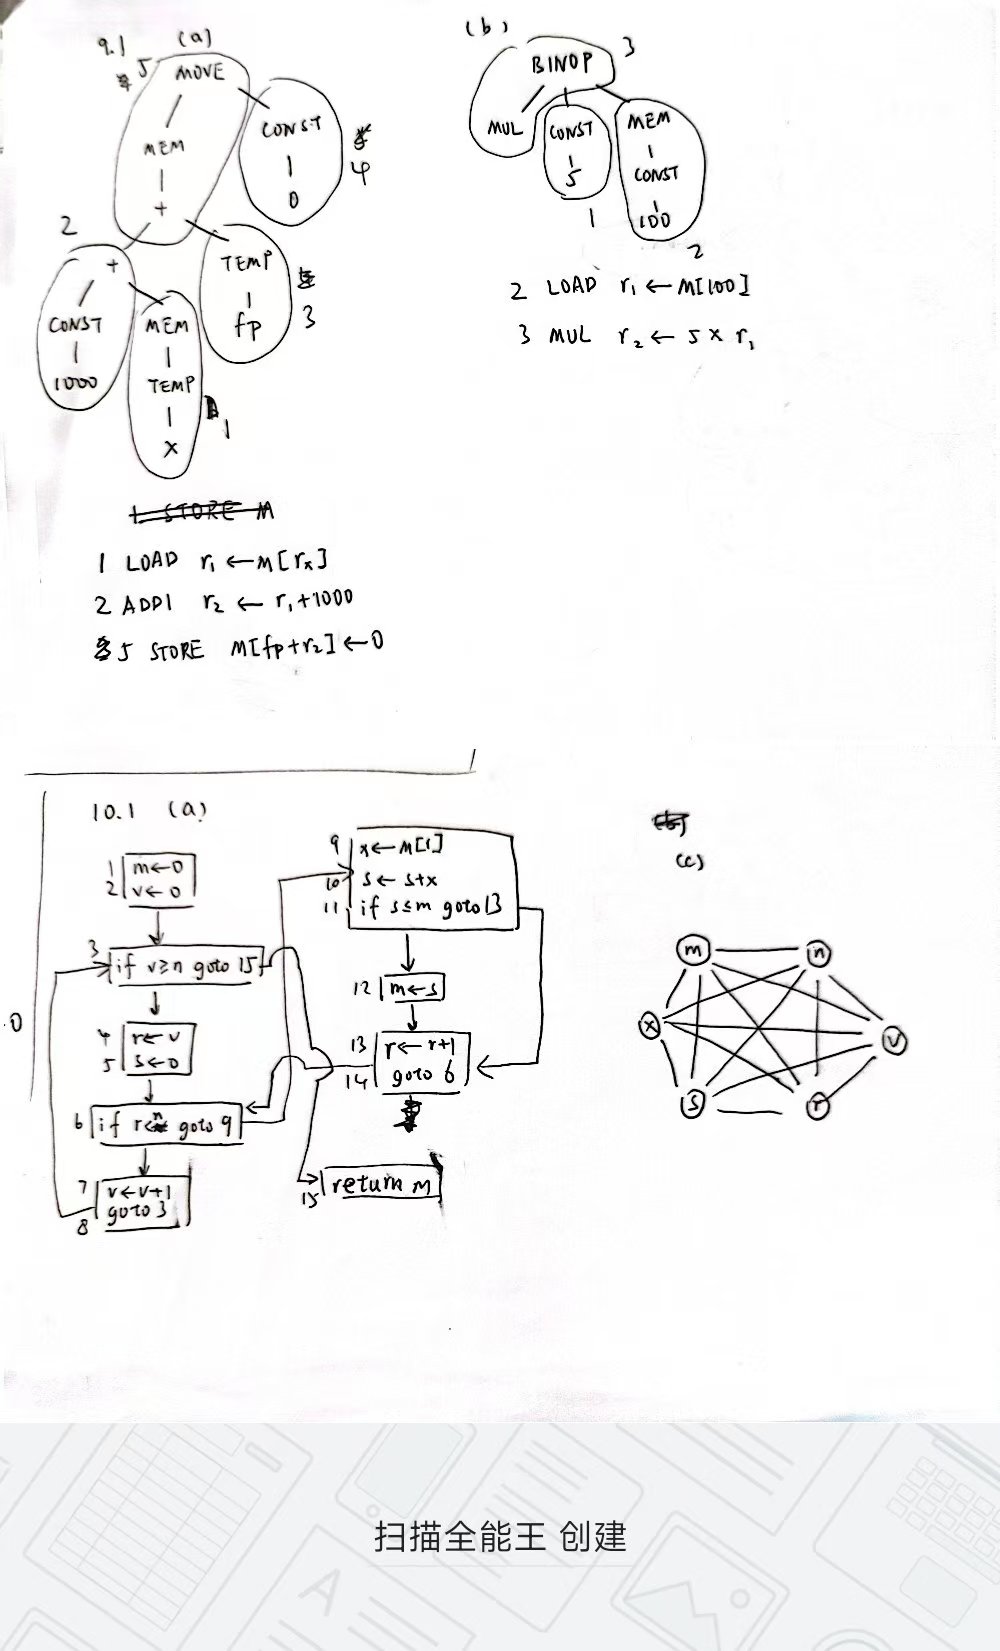 9.1 (a)
5 MOVE
MEM
+
CONST
0
4
2
+
CONST
1000
MEM
TEMP
x
1
TEMP
fp
3
1 STORE M
1 LOAD r₁ ← M[rₓ]
2 ADDI r₂ ← r₁+1000
5 STORE M[fp+r₂] ← 0
(b)
BINOP 3
MUL
CONST
5
1
MEM
CONST
100
2
2 LOAD r₁ ← M[100]
3 MUL r₂ ← 5 × r₁
10.1 (a)
1 m←0
2 v←0
3 if v≥n goto 15
4 r←v
5 s←0
6 if r<n goto 9
7 v←v+1
8 goto 3
9 x←M[r]
10 s←s+x
11 if s≤m goto 13
12 m←s
13 r←r+1
14 goto 6
15 return m
0
(c)
m n
x v
s r
扫描全能王 创建